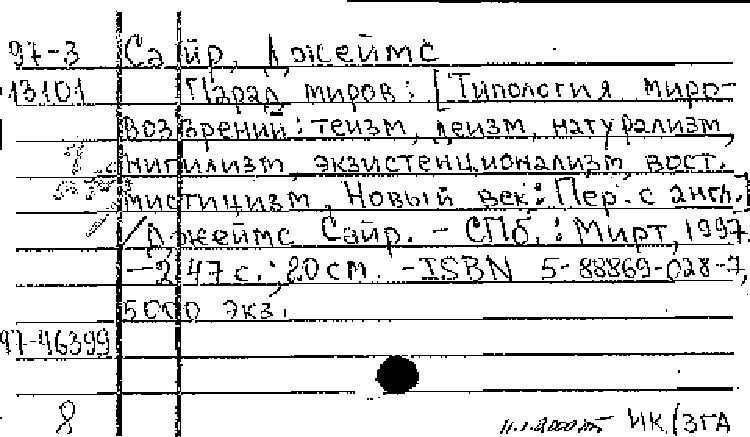 97-3 Сайр, Джеймс
13101 Парад миров: [Типология миро-
воззрений: теизм, деизм, натурализм,
нигилизм, экзистенционализм, вост.
мистицизм, Новый век: Пер. с англ.]
/Джеймс Сайр. - СПб.: Мирт, 1997.
- 247 с.; 20 см. - ISBN 5-88869-028-7,
5000 экз.
97-46399
8 ИК/ЗГА